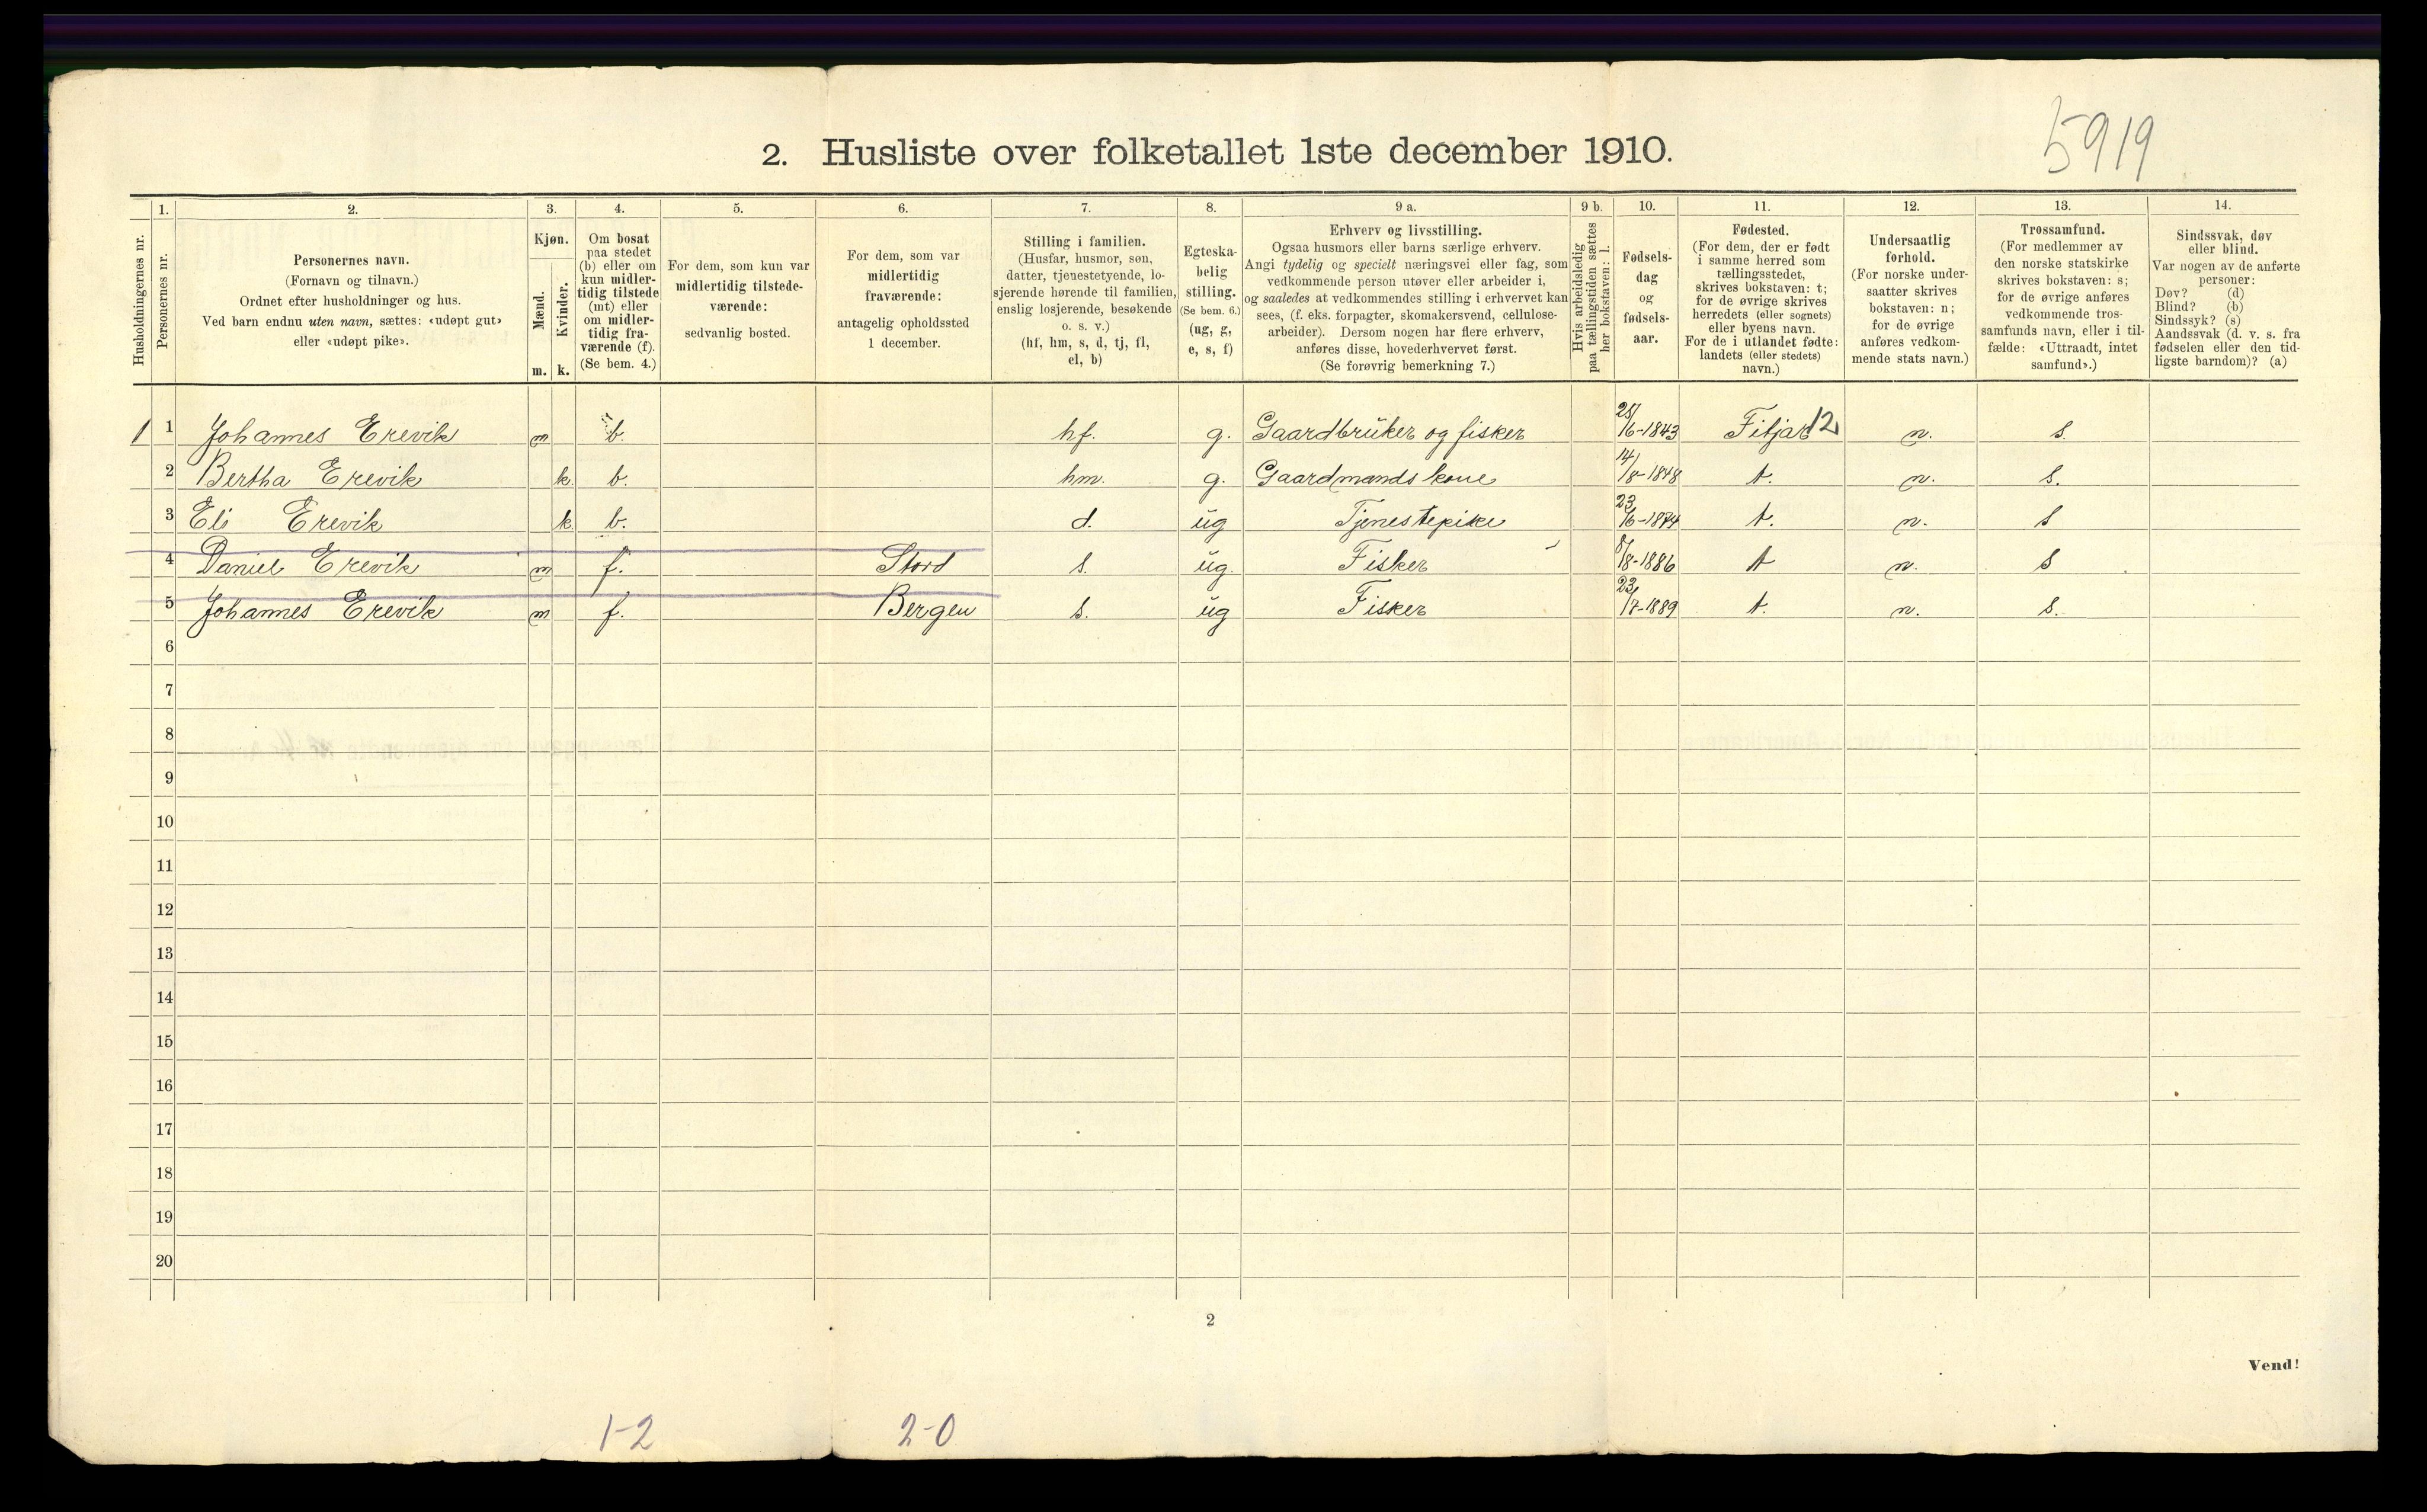 5919
2. Husliste over folketallet 1ste december 1910.
Husholdningernes nr.
1. Personernes nr.
2. Personernes navn. (Fornavn og tilnavn.) Ordnet efter husholdninger og hus. Ved barn endnu uten navn, sættes: «udøpt gut» eller «udøpt pike».
3. Kjøn. Mænd. m. Kvinder. k.
4. Om bosat paa stedet (b) eller om kun midlertidig tilstede (mt) eller om midlertidig fraværende (f). (Se bem. 4.)
5. For dem, som kun var midlertidig tilstedeværende: sedvanlig bosted.
6. For dem, som var midlertidig fraværende: antagelig opholdssted 1 december.
7. Stilling i familien. (Husfar, husmor, søn, datter, tjenestetyende, losjerende hørende til familien, enslig losjerende, besøkende o. s. v.) (hf, hm, s, d, tj, fl, el, b)
8. Egteskabelig stilling. (Se bem. 6.) (ug, g, e, s, f)
9 a. Erhverv og livsstilling. Ogsaa husmors eller barns særlige erhverv. Angi tydelig og specielt næringsvei eller fag, som vedkommende person utøver eller arbeider i, og saaledes at vedkommendes stilling i erhvervet kan sees, (f. eks. forpagter, skomakersvend, cellulosearbeider). Dersom nogen har flere erhverv, anføres disse, hovederhvervet først. (Se forøvrig bemerkning 7.)
9 b. Hvis arbeidsledig paa tællingstiden sættes her bokstaven: l.
10. Fødselsdag og fødselsaar.
11. Fødested. (For dem, der er født i samme herred som tællingsstedet, skrives bokstaven: t; for de øvrige skrives herredets (eller sognets) eller byens navn. For de i utlandet fødte: landets (eller stedets) navn.)
12. Undersaatlig forhold. (For norske undersaatter skrives bokstaven: n; for de øvrige anføres vedkommende stats navn.)
13. Trossamfund. (For medlemmer av den norske statskirke skrives bokstaven: s; for de øvrige anføres vedkommende trossamfunds navn, eller i tilfælde: «Uttraadt, intet samfund».)
14. Sindssvak, døv eller blind. Var nogen av de anførte personer: Døv? (d) Blind? (b) Sindssyk? (s) Aandssvak (d. v. s. fra fødselen eller den tidligste barndom)? (a)
1 1 Johannes Erevik m b. hf. g. Gaardbruker og fisker 25/6-1843 Fitjar 12 n. s.
2 Bertha Erevik k. b. hm. g. Gaardmands kone 14/8-1848 t. n. s.
3 Eli Erevik k b. d. ug Tjenestepike 23/6-1874 t. n. s
4 Daniel Erevik m f. Stord s. ug. Fisker 8/8-1886 t n. s
5 Johannes Erevik m f. Bergen s. ug Fisker 23/7-1889 t. n. s.
6
7
8
9
10
11
12
13
14
15
16
17
18
19
20
2
Vend!
1-2 2-0